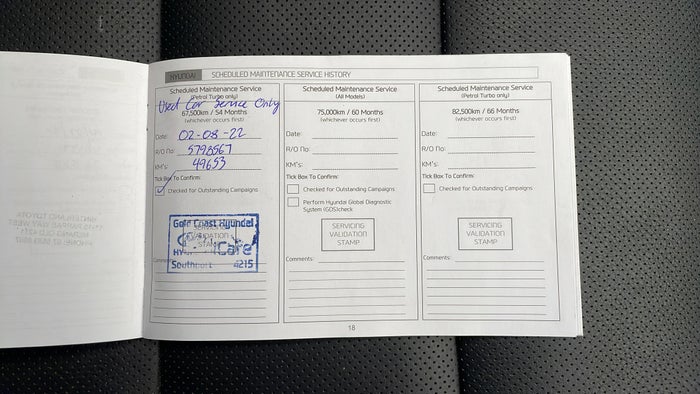 HYUNDAI SCHEDULED MAINTENANCE SERVICE HISTORY
Scheduled Maintenance Service
(Petrol Turbo only)
Used Car Service Only
67,500km / 54 Months
(whichever occurs first)
Date: 02-08-22
R/O No: 5798567
KM's: 49653
Tick Box To Confirm:
Checked for Outstanding Campaigns
Gold Coast Hyundai
SERVICING
VALIDATION
STAMP
iCare
Southport 4215
Comments:
Scheduled Maintenance Service
(All Models)
75,000km / 60 Months
(whichever occurs first)
Date:
R/O No:
KM's:
Tick Box To Confirm:
Checked for Outstanding Campaigns
Perform Hyundai Global Diagnostic
System (GDS)check
SERVICING
VALIDATION
STAMP
Comments:
Scheduled Maintenance Service
(Petrol Turbo only)
82,500km / 66 Months
(whichever occurs first)
Date:
R/O No:
KM's:
Tick Box To Confirm:
Checked for Outstanding Campaigns
SERVICING
VALIDATION
STAMP
Comments:
18